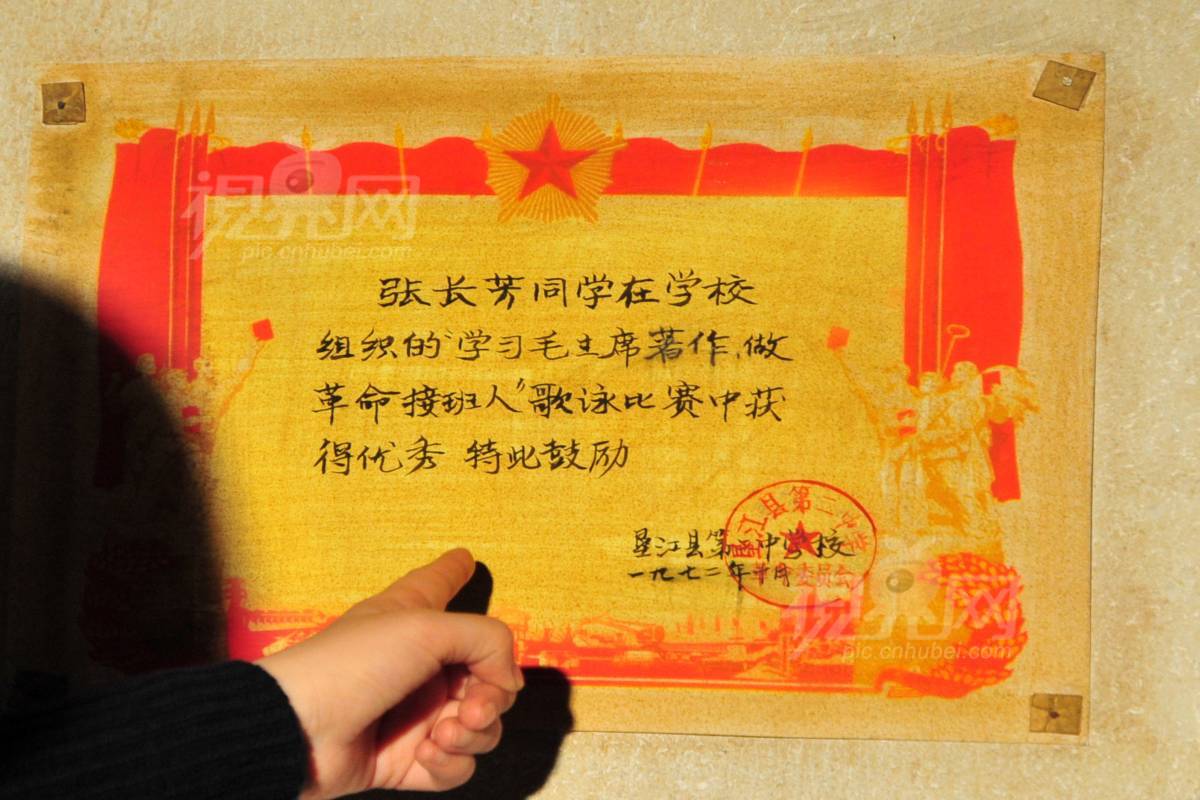 视界网
pic.cnhubei.com
张长芳同学在学校
组织的“学习毛主席著作、做
革命接班人”歌泳比赛中获
得优秀 特此鼓励
垦江县第二中学校
一九七二年 月
垦江县第二中学
革命委员会
视界网
pic.cnhubei.com